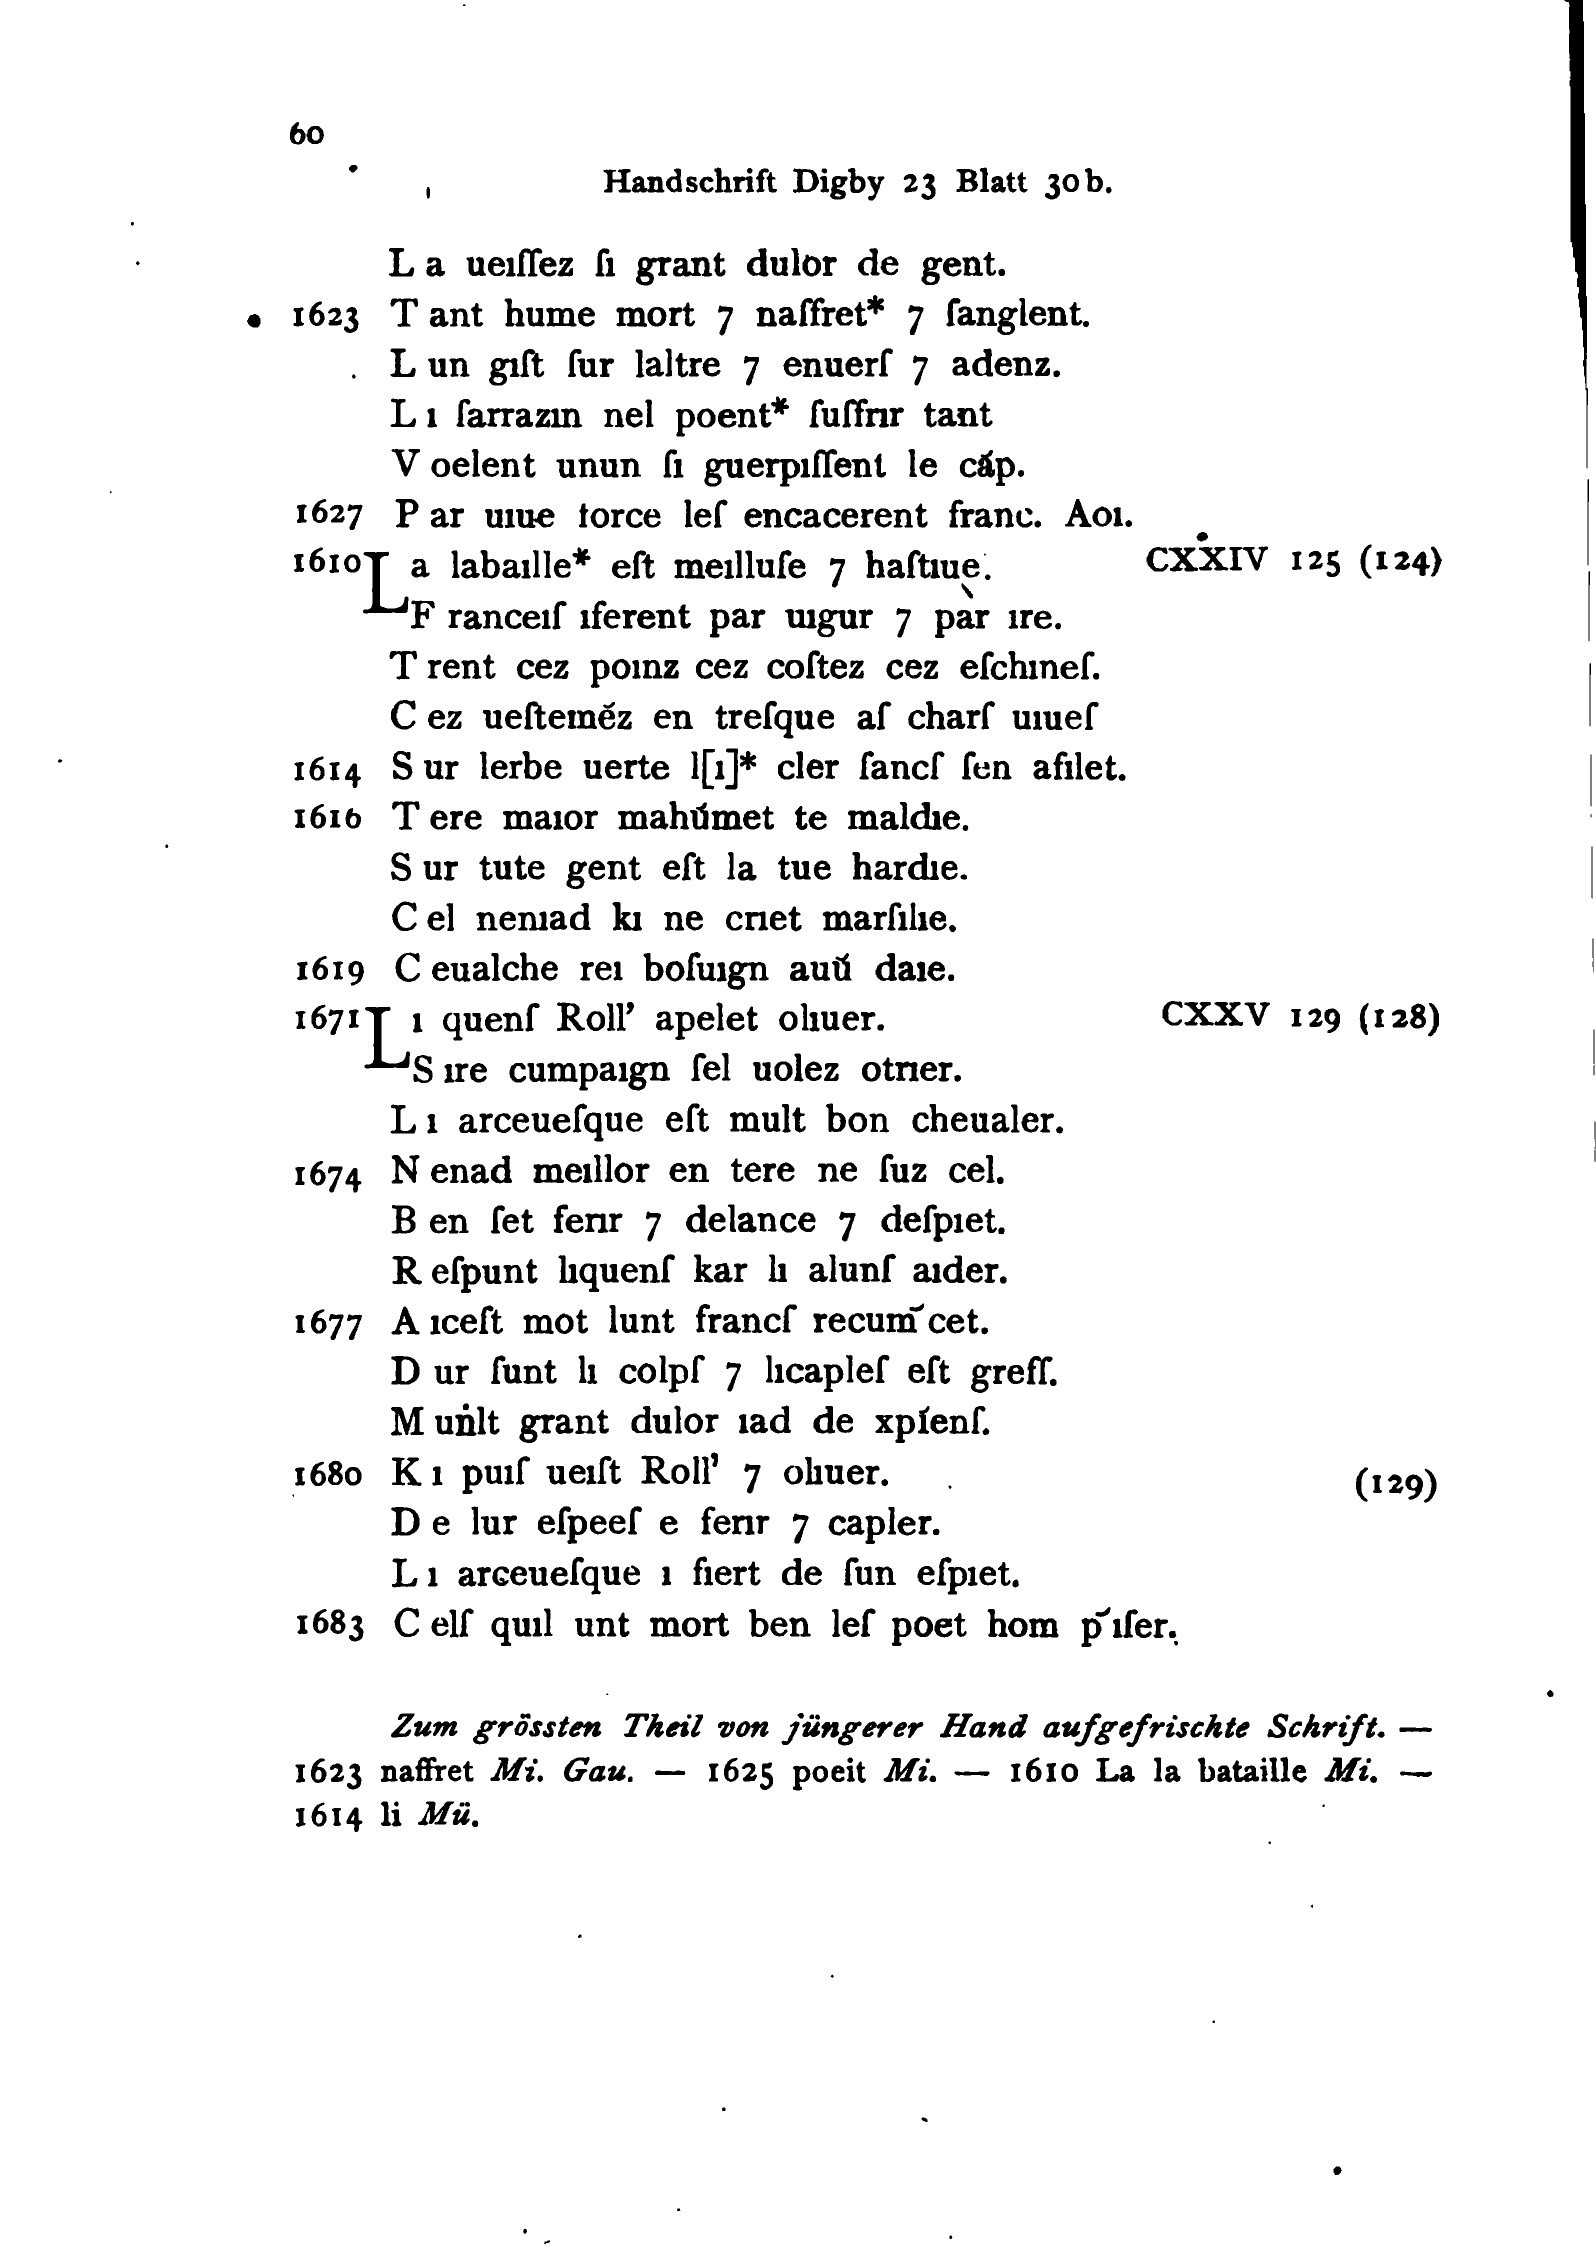 60
Handschrift Digby 23 Blatt 30b.
L a ueıſſez ſı grant dulor de gent.
1623 T ant hume mort 7 naffret* 7 ſanglent.
L un gıſt ſur laltre 7 enuerſ 7 adenz.
L ı ſarrazın nel poent* ſuffrır tant
V oelent unun ſı guerpıſſent le cáp.
1627 P ar uıue force leſ encacerent franc. Aoı.
1610 L a labaılle* eſt meılluſe 7 haſtıue. CXXIV 125 (124)
F ranceıſ ıferent par uıgur 7 par ıre.
T rent cez poınz cez coſtez cez eſchıneſ.
C ez ueſteméz en treſque aſ charſ uıueſ
1614 S ur lerbe uerte l[ı]* cler ſancſ ſen afılet.
1616 T ere maıor mahúmet te maldıe.
S ur tute gent eſt la tue hardıe.
C el nenıad kı ne crıet marſılıe.
1619 C eualche reı boſuıgn auú daıe.
1671 L ı quenſ Roll’ apelet olıuer. CXXV 129 (128)
S ıre cumpaıgn ſel uolez otrıer.
L ı arceueſque eſt mult bon cheualer.
1674 N enad meıllor en tere ne ſuz cel.
B en ſet ferır 7 delance 7 deſpıet.
R eſpunt lıquenſ kar lı alunſ aıder.
1677 A ıceſt mot lunt francſ recum̄cet.
D ur ſunt lı colpſ 7 lıcapleſ eſt greſſ.
M uṅlt grant dulor ıad de xpı́enſ.
1680 K ı puıſ ueıſt Roll’ 7 olıuer. (129)
D e lur eſpeeſ e ferır 7 capler.
L ı arceueſque ı fıert de ſun eſpıet.
1683 C elſ quıl unt mort ben leſ poet hom p̄ıſer.
Zum grössten Theil von jüngerer Hand aufgefrischte Schrift. —
1623 naffret Mi. Gau. — 1625 poeit Mi. — 1610 La la bataille Mi. —
1614 li Mü.